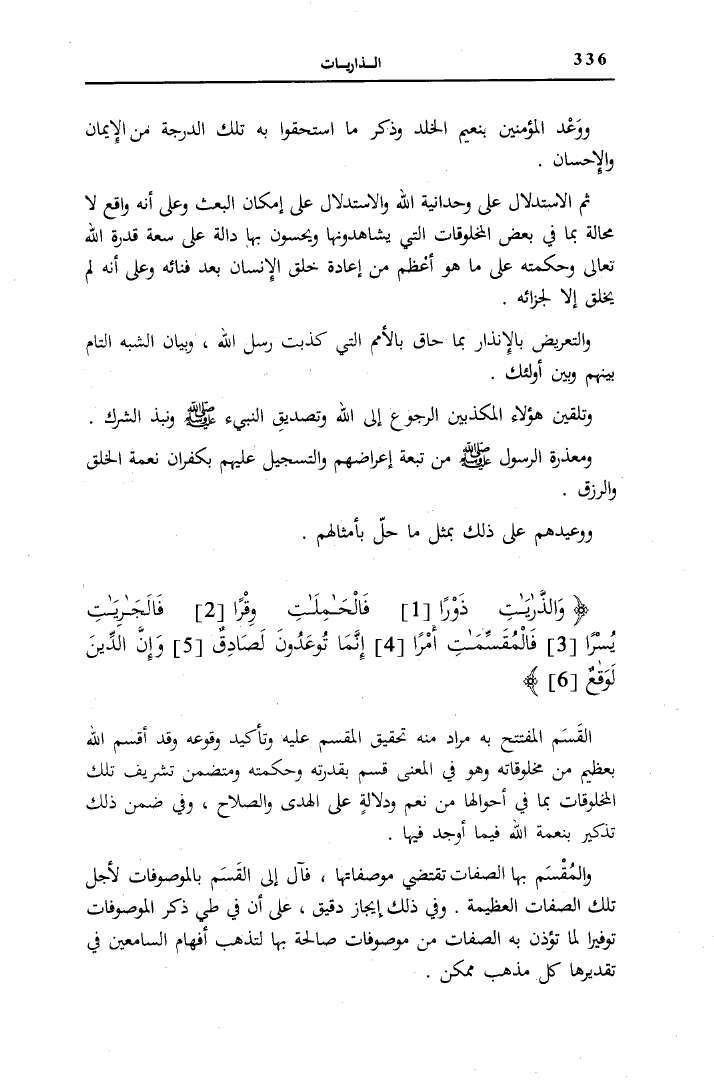 336
الـذاريـات
ووَعْد المؤمنين بنعيم الخلد وذكر ما استحقوا به تلك الدرجة من الإيمان
والإحسان .
ثم الاستدلال على وحدانية الله والاستدلال على إمكان البعث وعلى أنه واقع لا
محالة بما في بعض المخلوقات التي يشاهدونها ويحسون بها دالة على سعة قدرة الله
تعالى وحكمته على ما هو أعْظم من إعادة خلق الإنسان بعد فنائه وعلى أنه لم
يخلق إلا لجزائه .
والتعريض بالإنذار بما حاق بالأمم التي كذبت رسل الله ، وبيان الشبه التام
بينهم وبين أولئك .
وتلقين هؤلاء المكذبين الرجوع إلى الله وتصديق النبيء ﷺ ونبذ الشرك .
ومعذرة الرسول ﷺ من تبعة إعراضهم والتسجيل عليهم بكفران نعمة الخلق
والرزق .
ووعيدهم على ذلك بمثل ما حلّ بأمثالهم .
﴿ وَالذَّٰرِيَٰتِ ذَرْوًا [1] فَالْحَٰمِلَٰتِ وِقْرًا [2] فَالْجَٰرِيَٰتِ
يُسْرًا [3] فَالْمُقَسِّمَٰتِ أَمْرًا [4] إِنَّمَا تُوعَدُونَ لَصَادِقٌ [5] وَإِنَّ الدِّينَ
لَوَٰقِعٌ [6] ﴾
القَسَم المفتتح به مراد منه تحقيق المقسم عليه وتأكيد وقوعه وقد أقسم الله
بعظيم من مخلوقاته وهو في المعنى قسم بقدرته وحكمته ومتضمن تشريف تلك
المخلوقات بما في أحوالها من نعم ودلالةٍ على الهدى والصلاح ، وفي ضمن ذلك
تذكير بنعمة الله فيما أوجد فيها .
والمُقْسَم بها الصفات تقتضي موصفاتها ، فآل إلى القَسَم بالموصوفات لأجل
تلك الصفات العظيمة . وفي ذلك إيجاز دقيق ، على أن في طي ذكر الموصوفات
توفيرا لما تؤذن به الصفات من موصوفات صالحة بها لتذهب أفهام السامعين في
تقديرها كل مذهب ممكن .